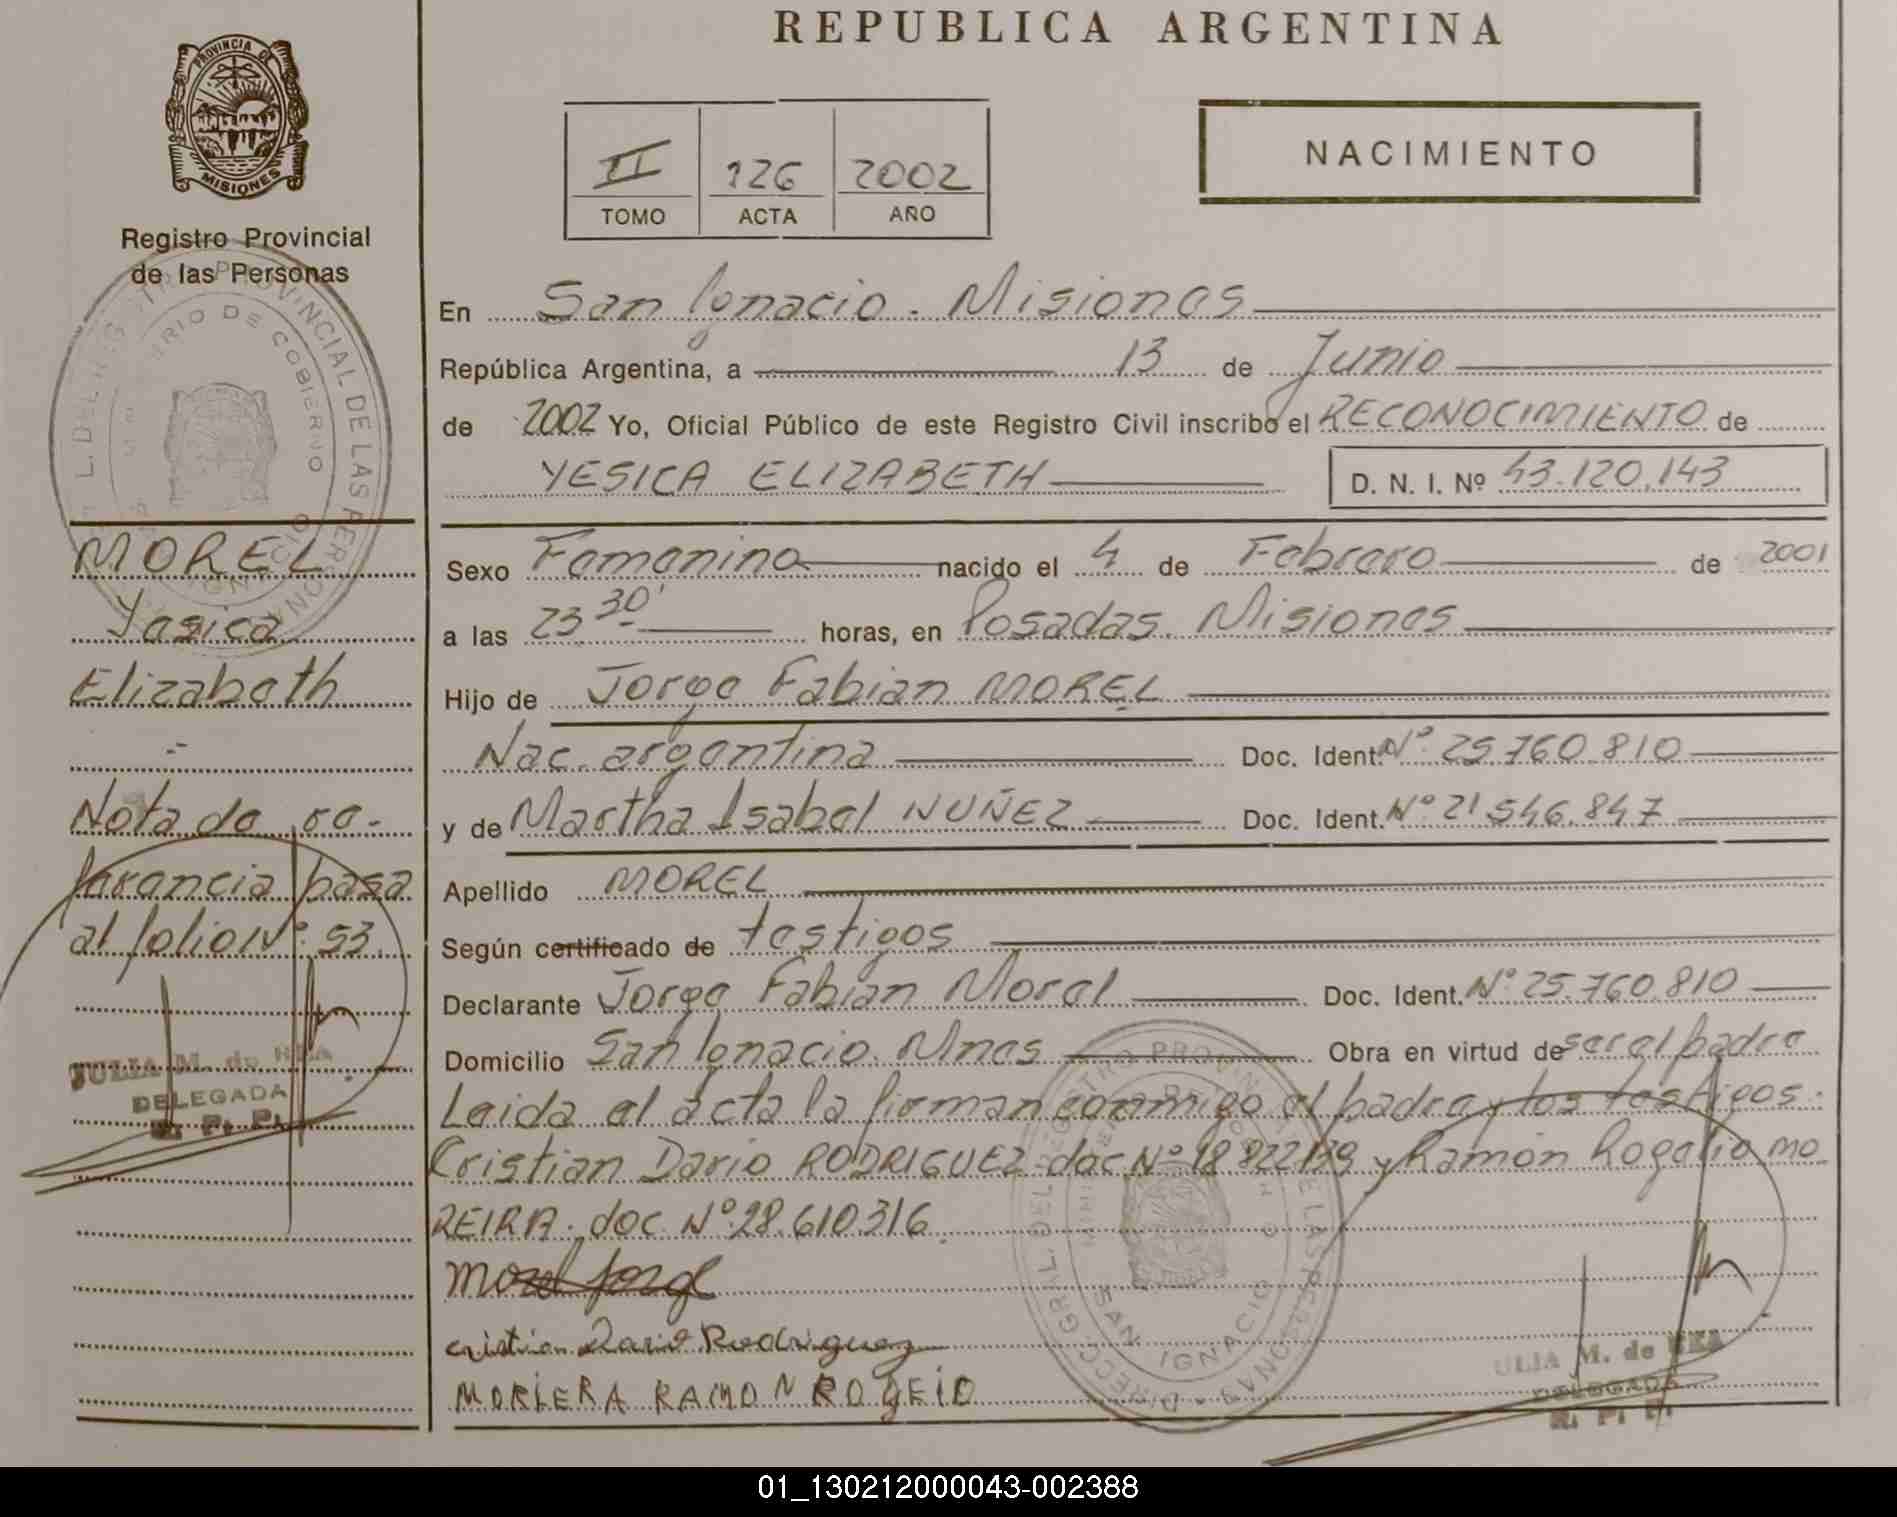 REPUBLICA ARGENTINA
PROVINCIA DE
MISIONES
Registro Provincial
de las Personas
II 126 2002
TOMO ACTA AÑO
NACIMIENTO
En San Ignacio. Misiones
República Argentina, a 13 de Junio
de 2002 Yo, Oficial Público de este Registro Civil inscribo el RECONOCIMIENTO de
YESICA ELIZABETH D. N. I. Nº 43.120.143
Sexo Femenino nacido el 4 de Febrero de 2001
a las 23 30' horas, en Posadas. Misiones
Hijo de Jorge Fabian MOREL
Nac. argentina Doc. Ident. Nº 25.760.810
y de Martha Isabel NUÑEZ Doc. Ident. Nº 21.546.847
Apellido MOREL
Según certificado de testigos
Declarante Jorge Fabian Morel Doc. Ident. Nº 25.760.810
Domicilio San Ignacio. Mnes Obra en virtud de ser el padre
Leida el acta la firman conmigo el padre y los testigos:
Cristian Dario RODRIGUEZ doc Nº 18 822139 y Ramón Rogelio MO
REIRA. doc. Nº 28.610.316.
Morel Jorge
cristian Dario Rodriguez
MORIERA RAMON ROGEIO
MOREL
Yesica
Elizabeth
-
Nota de re-
ferencia pasa
al folio Nº 53.
JULIA M. de
DELEGADA
R. P. P.
ULIA M. de
DELEGADA
R. P. P.
DIRECC. GRAL. DEL REGISTRO PROVINCIAL DE LAS PERSONAS
MINISTERIO DE GOBIERNO
SAN IGNACIO
01_130212000043-002388